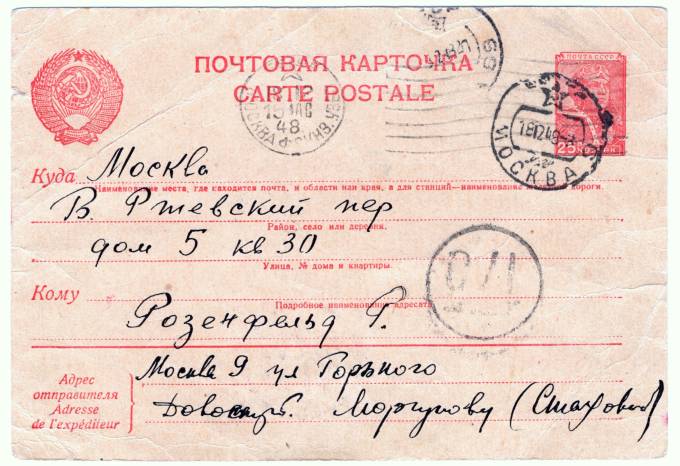 ПОЧТОВАЯ КАРТОЧКА
CARTE POSTALE
ПОЧТА СССР
25
МОСКВА
48
18 12 48
МОСКВА
Куда Москва
Наименование места, где находится почта, и области или края, а для станций—наименование дороги.
В Ржевский пер
Район, село или деревня.
дом 5 кв 30
Улица, № дома и квартиры.
Кому
Подробное наименование адресата
Розенфельд Г.
Адрес отправителя
Adresse de l'expéditeur
Москва 9 ул Горького
Моргунову (Стахович)